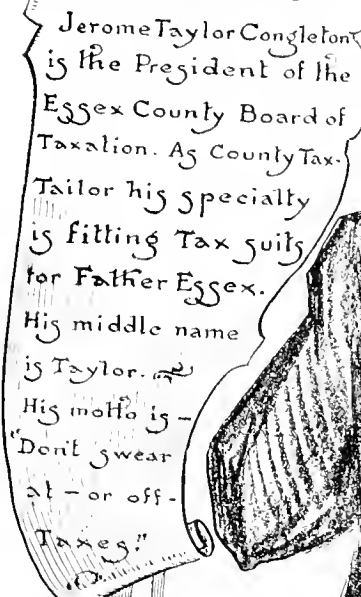 Jerome Taylor Congleton
is the President of the
Essex County Board of
Taxation. As County Tax-
Tailor his specialty
is fitting Tax suits
for Father Essex.
His middle name
is Taylor.
His motto is –
"Don't swear
at – or off –
Taxes."